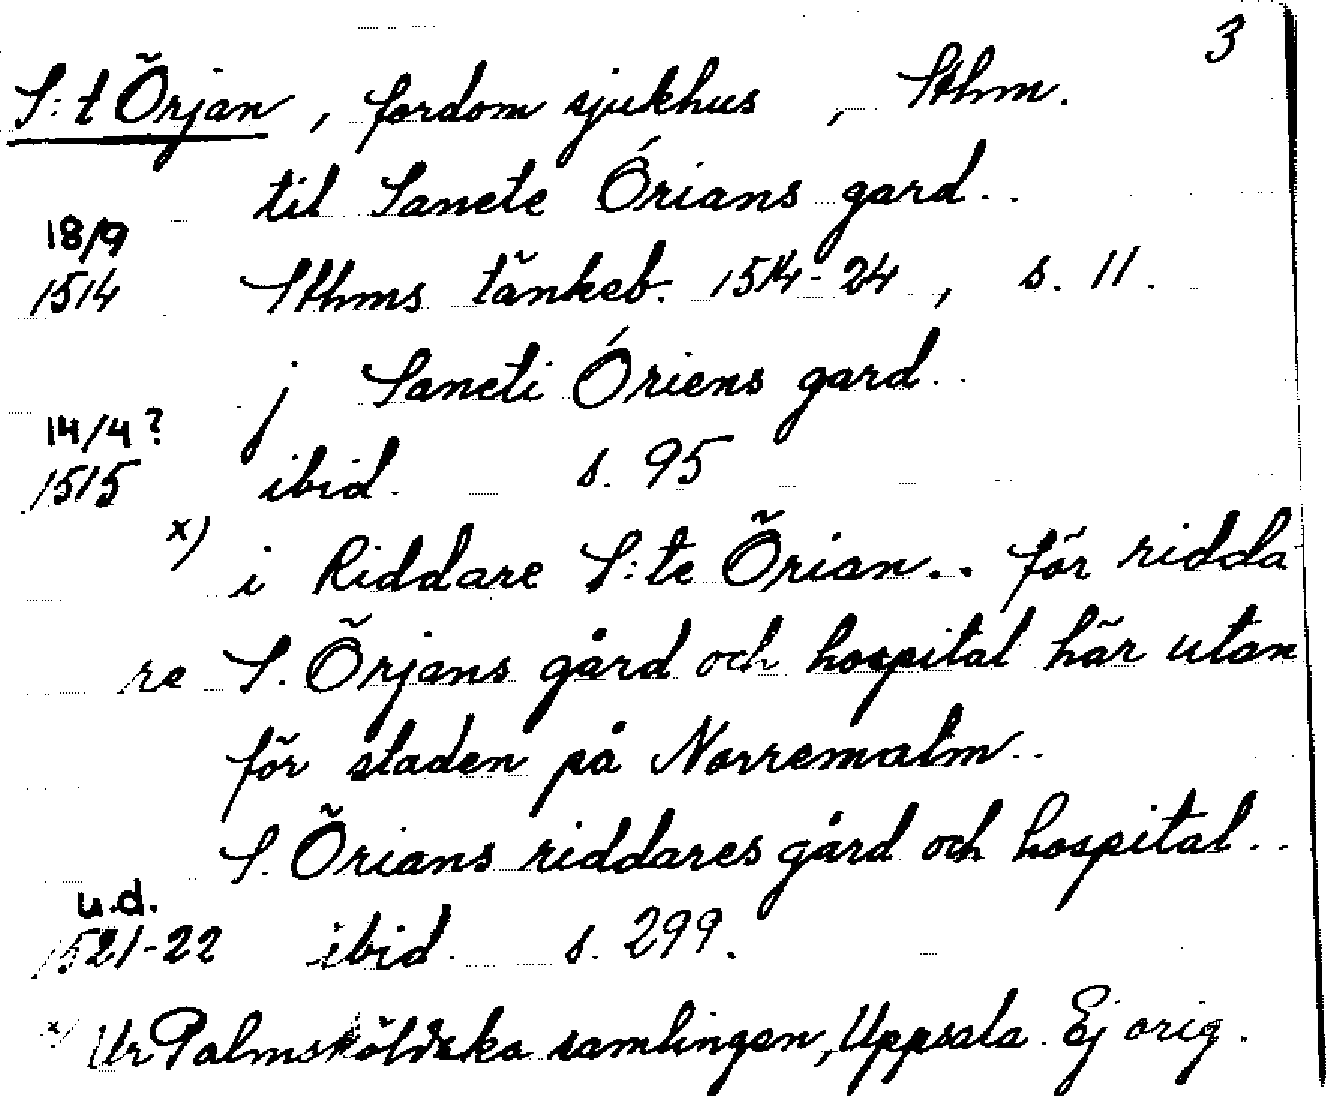 3
S:t Örjan, fordom sjukhus, Sthm.
til Sancte Órians gard..
18/9
1514 Sthms tänkeb. 1514-24, s. 11.
j Sancti Óriens gard..
14/4?
1515 ibid. s. 95
x) i Riddare S:te Örian.. för ridda
re S. Örjans gård och hospital här utan
för staden på Norremalm..
S. Örians riddares gård och hospital..
u.d.
1521-22 ibid. s. 299.
x) Ur Palmsköldska samlingen, Uppsala. Ej orig.